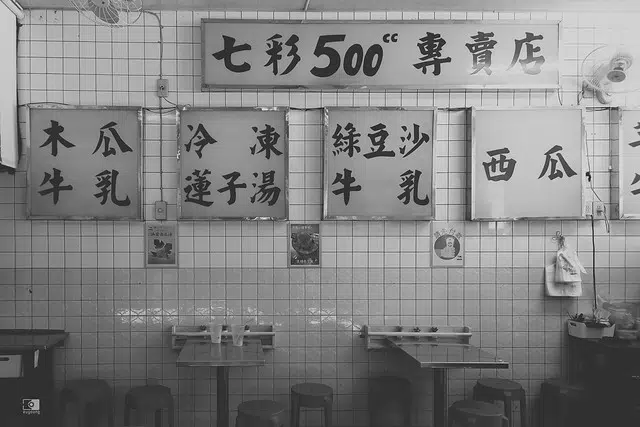 七彩500cc專賣店
木瓜
牛乳
冷凍
蓮子湯
綠豆沙
牛乳
西瓜